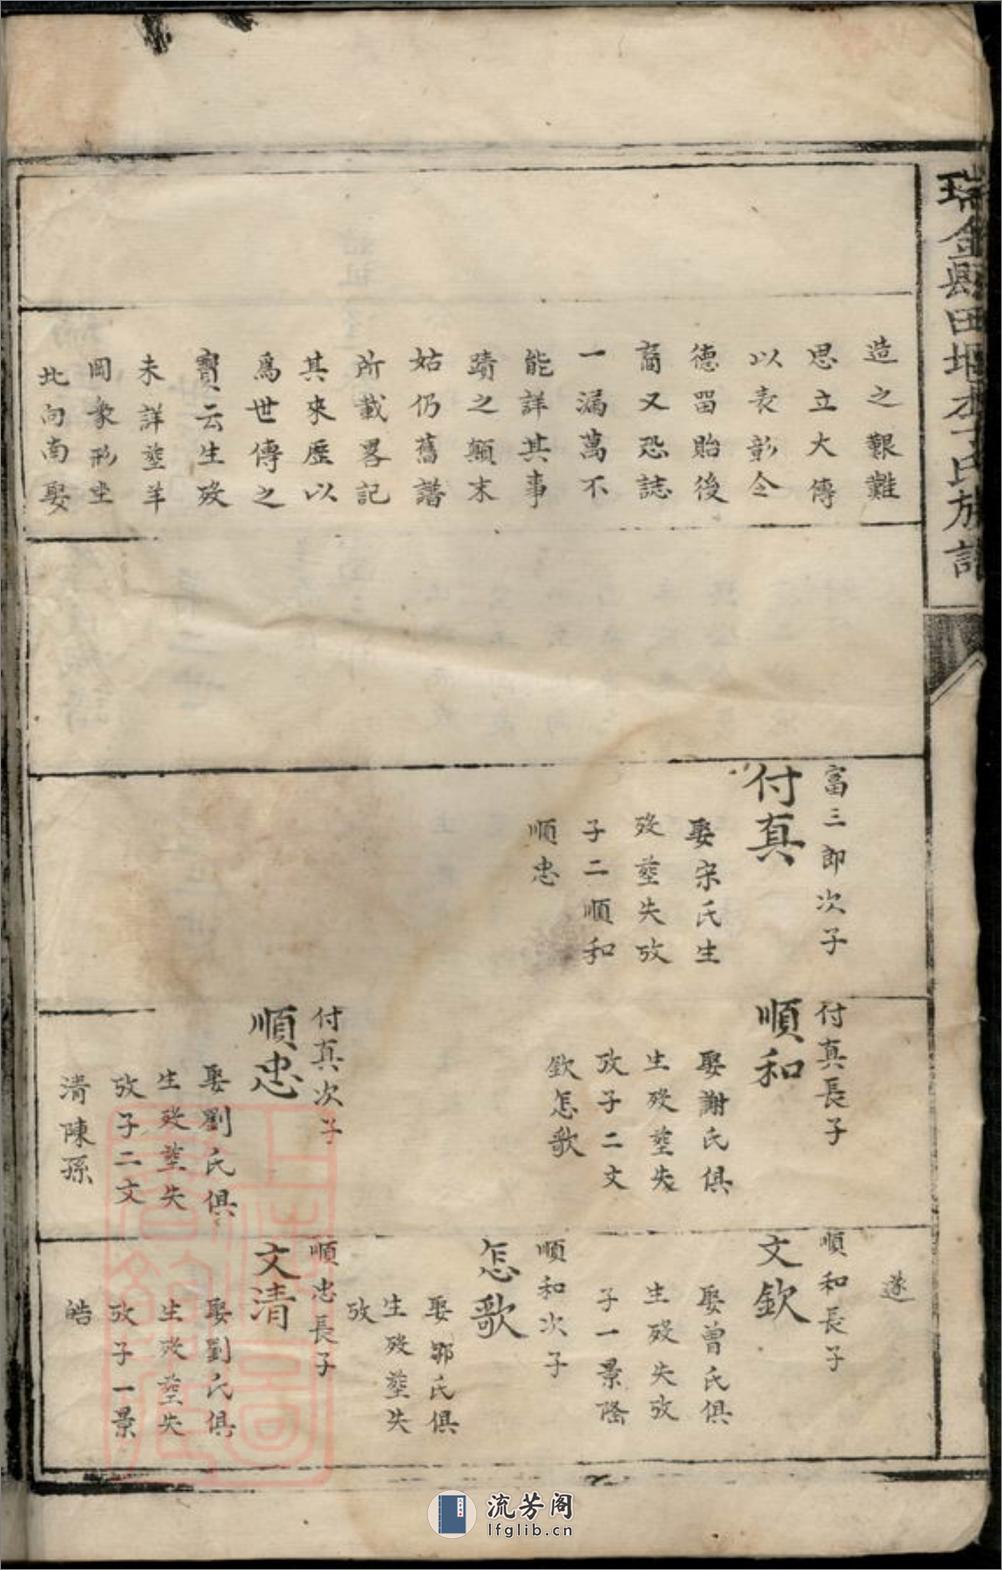 瑞金縣田堀李氏族譜
造之艱難
思立大傳
以表彰令
德畱貽後
裔又恐誌
一漏萬不
能詳其事
蹟之顛末
姑仍舊譜
所載畧記
其來歷以
為世傳之
寶云生歿
未詳塟羊
岡象形坐
北向南娶
富三郎次子
付真
娶宋氏生
歿塟失攷
子二順和
順忠
付真長子
順和
娶謝氏俱
生歿塟失
攷子二文
欽怎歌
付真次子
順忠
娶劉氏俱
生歿塟失
攷子二文
清陳孫
遂
順和長子
文欽
娶曾氏俱
生歿失攷
子一景隆
順和次子
怎歌
娶郭氏俱
生歿塟失
攷
順忠長子
文清
娶劉氏俱
生歿塟失
攷子一景
皓
流芳阁
lfglib.cn